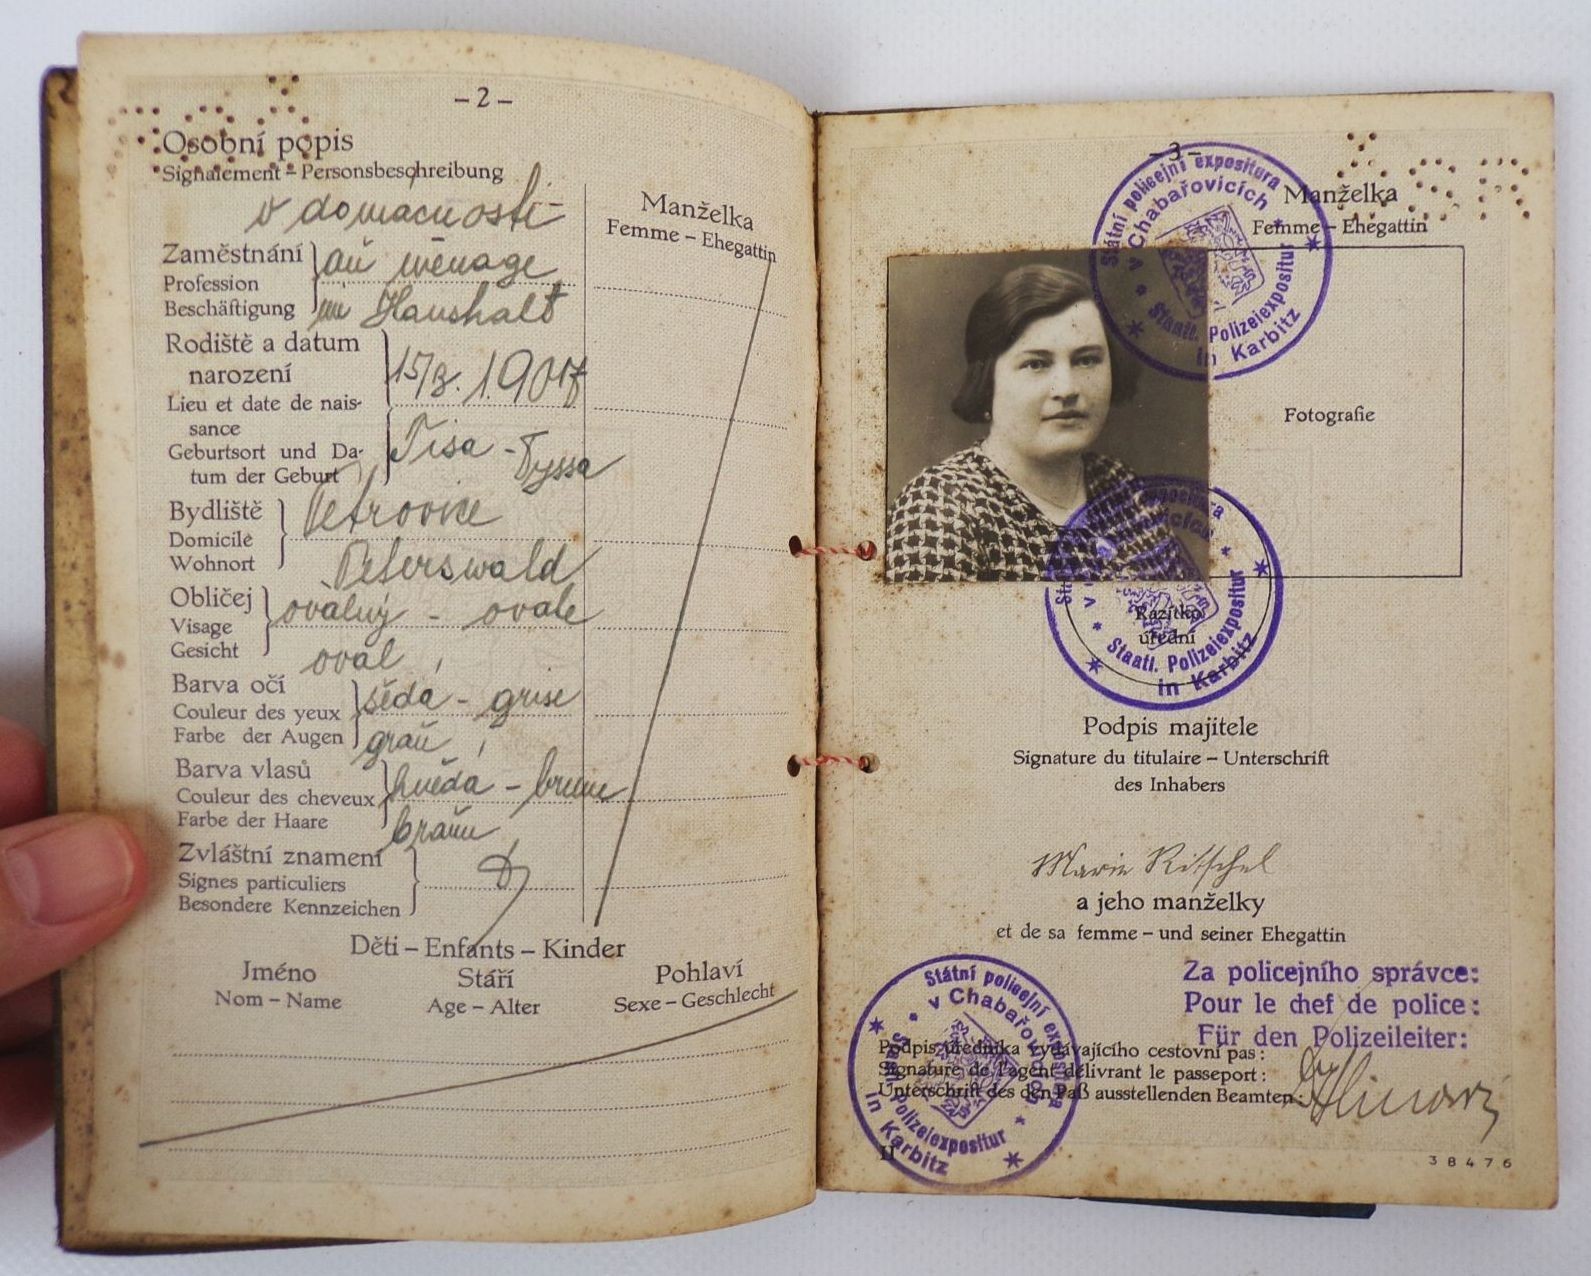 – 2 –
Osobní popis
Signalement – Personsbeschreibung
v domácnosti
Manželka
Femme – Ehegattin
Zaměstnání
Profession
Beschäftigung
au ménage
im Haushalt
Rodiště a datum
narození
Lieu et date de nais-
sance
Geburtsort und Da-
tum der Geburt
1907
Tisa - Tyssa
Bydliště
Domicile
Wohnort
Petrovice
Peterswald
Obličej
Visage
Gesicht
oválný - ovale
oval
Barva očí
Couleur des yeux
Farbe der Augen
šedá - grise
grau
Barva vlasů
Couleur des cheveux
Farbe der Haare
hnědá - brune
braun
Zvláštní znamení
Signes particuliers
Besondere Kennzeichen
Děti – Enfants – Kinder
Jméno
Nom – Name
Stáří
Age – Alter
Pohlaví
Sexe – Geschlecht
– 3 –
Státní policejní expositura
v Chabařovicích
Staatl. Polizeiexpositur
in Karbitz
Manželka
Femme – Ehegattin
Fotografie
Razítko
úřední
Staatl. Polizeiexpositur
in Karbitz
Podpis majitele
Signature du titulaire – Unterschrift
des Inhabers
Marie Ritschel
a jeho manželky
et de sa femme – und seiner Ehegattin
Za policejního správce:
Pour le chef de police:
Für den Polizeileiter:
Státní policejní expositura
v Chabařovicích
Staatl. Polizeiexpositur
in Karbitz
Podpis úředníka vydávajícího cestovní pas:
Signature de l'agent délivrant le passeport:
Unterschrift des den Paß ausstellenden Beamten:
II
38476